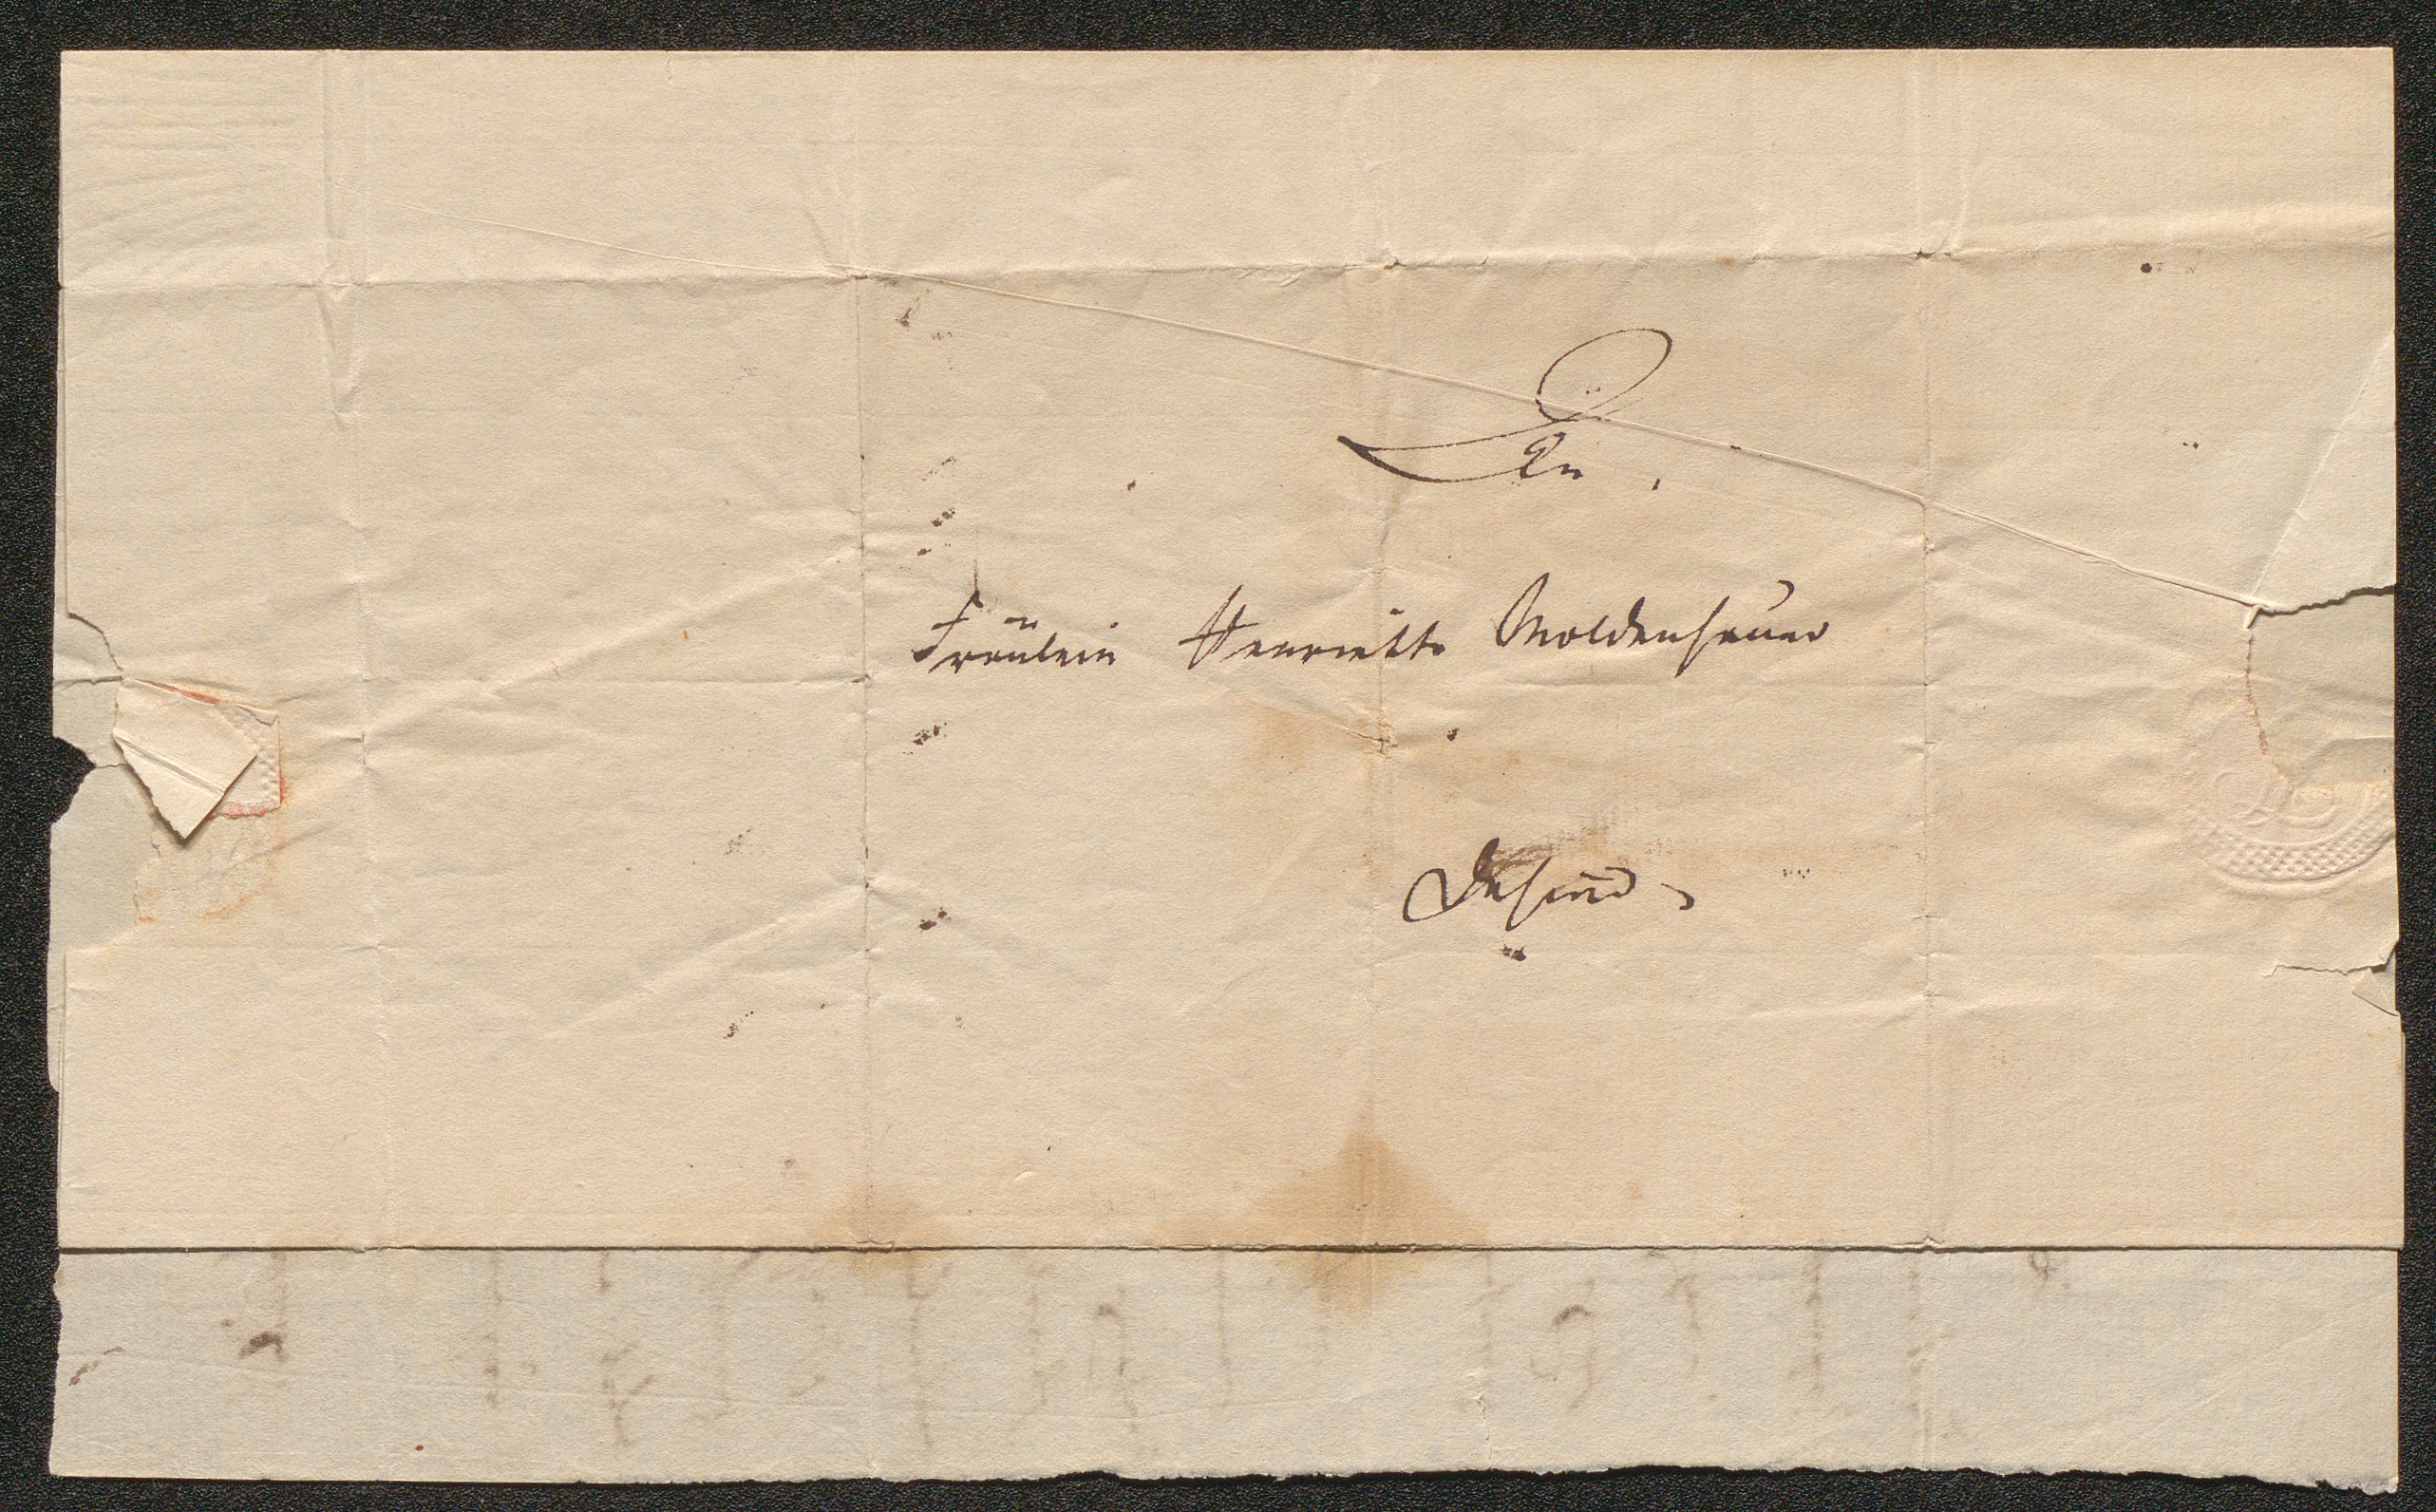 An
Fräulein Henriette Moldenhauer